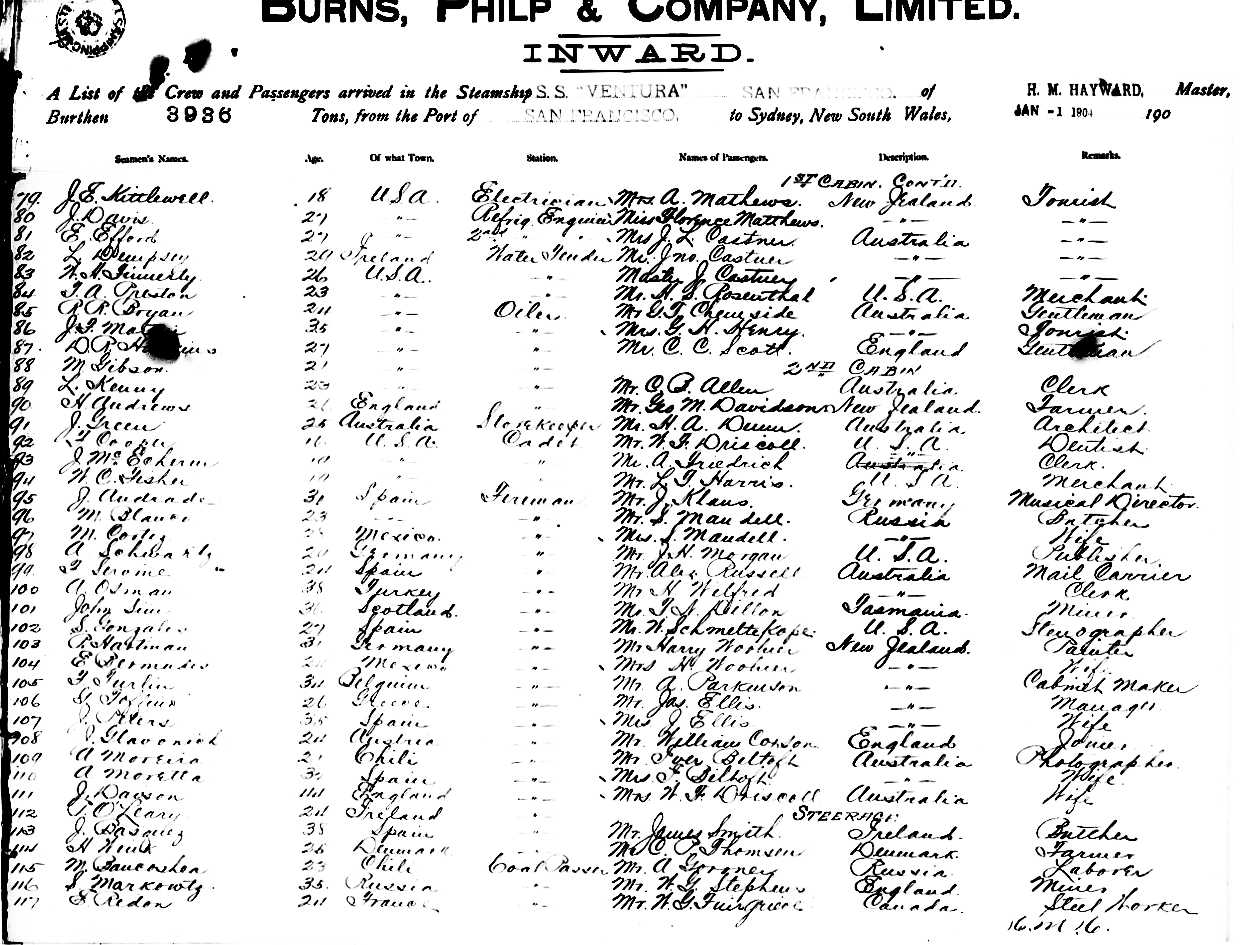 BURNS, PHILP & COMPANY, LIMITED.
INWARD.
A List of the Crew and Passengers arrived in the Steamship S. S. "VENTURA" SAN FRANCISCO. of H. M. HAYWARD, Master,
Burthen 3936 Tons, from the Port of SAN FRANCISCO. to Sydney, New South Wales, JAN -1 1904 190
Seamen's Names. Age. Of what Town. Station. Names of Passengers. Description. Remarks.
1ST CABIN. CONT'D.
79. J. E. Kittlewell. 18 U.S.A. Electrician Mrs A. Mathews. New Zealand Tourist
80 J. Davis. 27 -"- Refrig. Miss Florence Matthews. -"- -"-
81 E. Efford 27 -"- 2nd " Mrs J. L. Castner Australia -"-
82 L. Dempsey 29 Ireland Water Tender Mr. Jno. Castner -"- -"-
83 26 U.S.A. -"- J. Castner -"- -"-
84 T. A. Preston 23 -"- -"- Mr. H. S. Rosenthal U.S.A. Merchant
85 R. R. Bryan 24 -"- Oiler Mr G. T. Chemside Australia Gentleman
86 J. F. 35 -"- -"- Mrs. G. H. Henry. -"- Tourist.
87. D. P. 27 -"- -"- Mr. C. C. Scott. England Gentleman
88 M Gibson. 21 -"- -"- 2ND CABIN
89 L. Kenny 23 -"- -"- Mr. O. B. Allen Australia. Clerk
90 H Andrews England -"- Mr. Geo M. Davidson New Zealand. Farmer.
91 J. Green 25 Australia Storekeeper Mr. H. A. Australia. Architect.
92 Cooper U.S.A. Cadet Mr. W. F. Driscoll. U.S.A. Dentist.
93 J. McEchern -"- " Mr. A. Friedrich Australia. Clerk.
94 W. C. Fisher " Mr. L. T. Harris. U.S.A. Merchant
95 J. Andrade 31 Spain Fireman Mr. J. Klaus. Germany Musical Director
96 M. Blanco 23 -"- -"- Mr. S. Mandell. Russia Butcher
97 M. Cortez Mexico. -"- Mrs. S. Mandell. -"- Wife
98 A 24 Germany -"- Mr J. H. Morgan U.S.A. Publisher
99. Jerome 24 Spain -"- Mr. Alex Russell Australia Mail Carrier
100 A Osman 38 Turkey -"- Mr H. Welfred -"- Clerk
101 John Sim Scotland. -"- Mr T. A. Dillon Tasmania. Miner
102 S. Gonzales 27 Spain -"- Mr. W. U.S.A. Stenographer
103 P. Hartman Germany -"- Mr Harry New Zealand. Painter
104 E. Mexico -"- Mrs H. -"- Wife
105 34 Belgium -"- Mr A. Parkinson -"- Cabinet Maker
106 26 Greece. -"- Mr. Jas. Ellis. -"- Manager
107 Peters 35 Spain -"- Mrs J. Ellis -"- Wife
108 Glavonich 24 Austria -"- Mr. William Corson England Joiner
109 A Moreira 21 Chili -"- Mr. Iver Beltoft Australia Photographer
110 A Moretta Spain -"- Mrs F. Beltoft -"- Wife
111 J. Dawson 44 England -"- Mrs W. F. Driscoll Australia Wife
112 O'Leary 24 Ireland -"- STEERAGE
113 J. Basquez 38 Spain -"- Mr. James Smith. Ireland. Butcher
114 H 25 Denmark -"- Mr C. P. Thomsen Denmark. Farmer
115 M. 23 Chili Coal Passer Mr. A Russia. Laborer
116 S. Markowitz. 35. Russia -"- Mr. W. G. Stephens England. Miner
117 F. Redon 24 France -"- Mr. W. G. Canada. Steel Worker